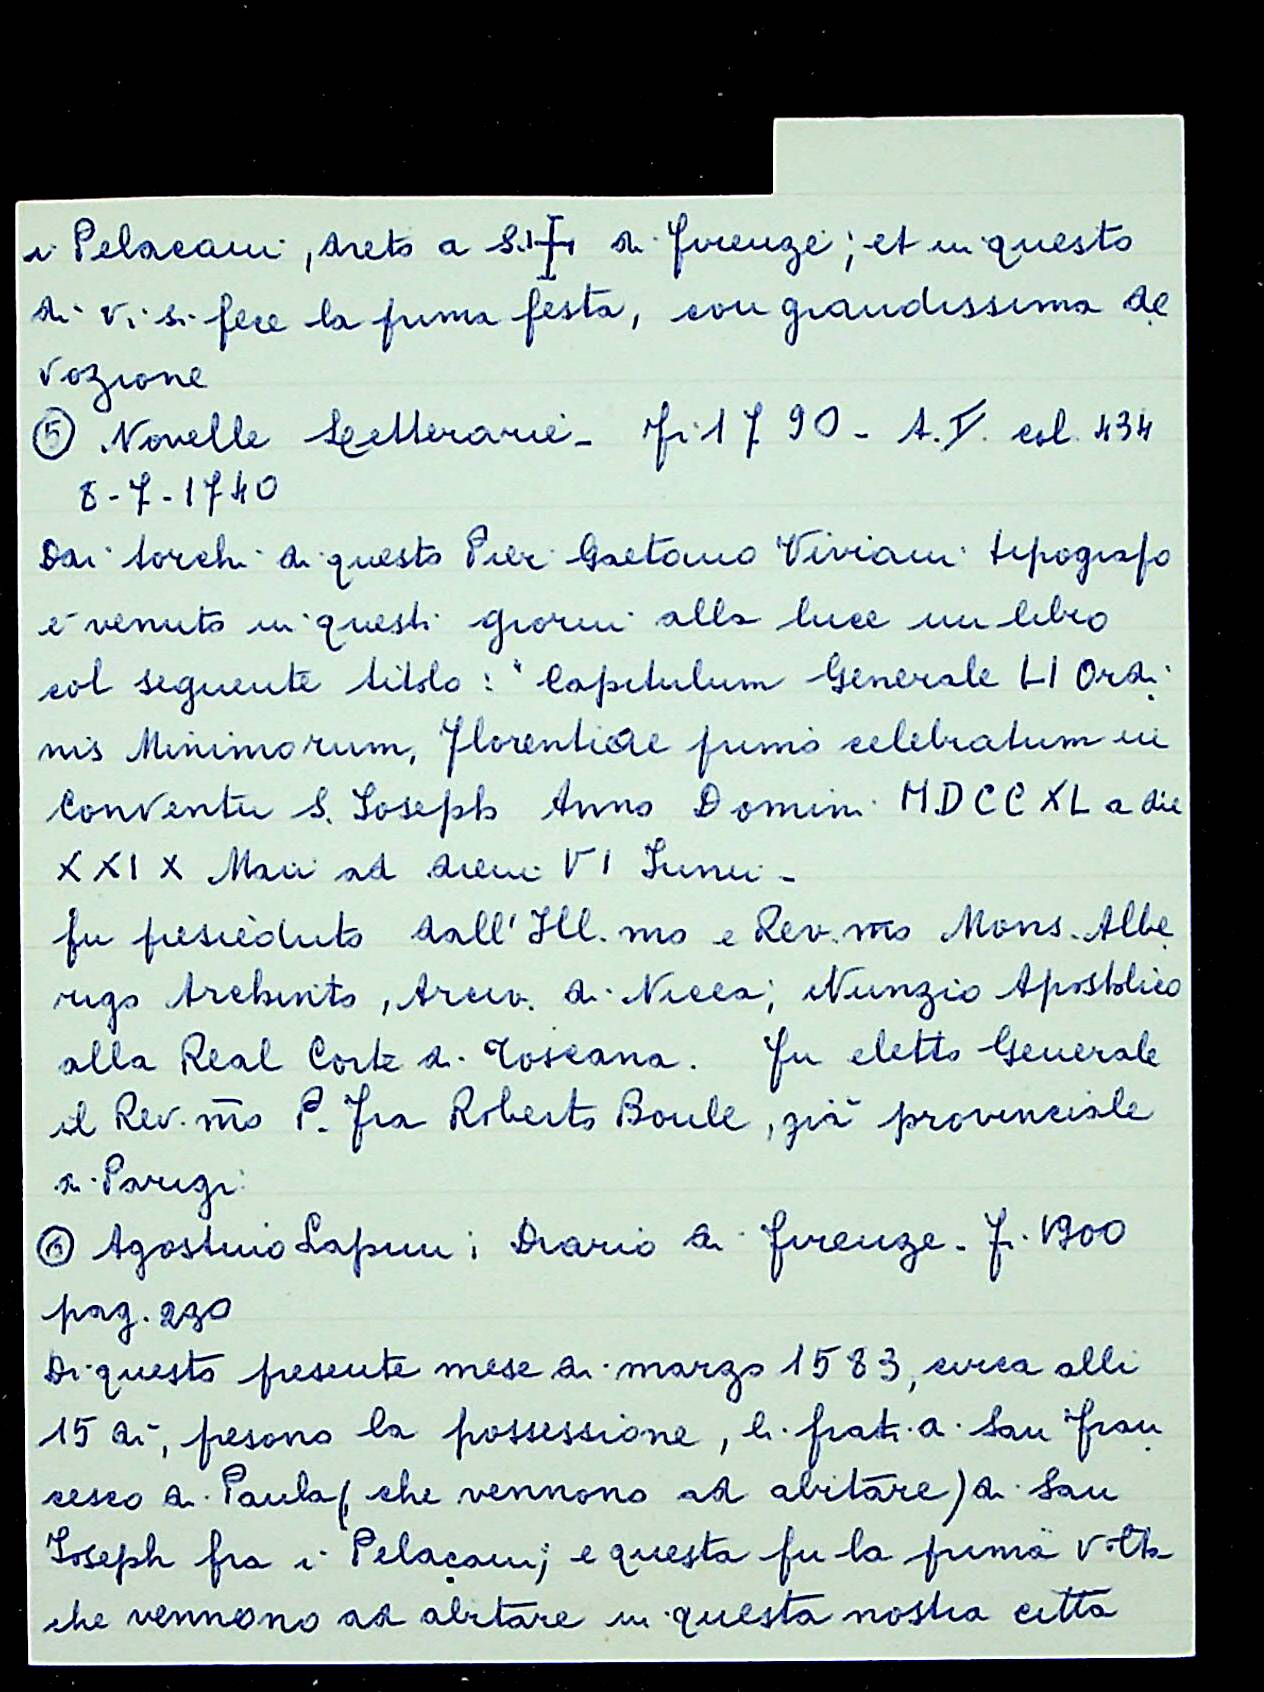 i Pelacani, dreto a S. + di Firenze; et in questo
di vi si fece la prima festa, con grandissima de
vozione
⑤ Novelle Letterarie - Fi 1790 - A.V. col. 434
8-7-1740
Dai torchi di questo Pier Gaetano Viviani tipografo
è venuto in questi giorni alla luce un libro
col seguente titolo: "Capitulum Generale LI Ordi
nis Minimorum, Florentiae primo celebratum in
Conventu S. Joseph Anno Domini MDCCXL a die
XXIX Maii ad diem VI Junii -
fu presieduto dall'Ill.mo e Rev.mo Mons. Albe
rigo Archinto, Arciv. di Nicea, Nunzio Apostolico
alla Real Corte di Toscana. Fu eletto Generale
il Rev.mo P. Fra Roberto Boule, già provinciale
di Parigi
⑥ Agostino Lapini: Diario di Firenze - Fi. 1900
pag. 230
Di questo presente mese di marzo 1583, circa alli
15 dì, presono la possessione, li frati di San Fran
cesco di Paula (che vennono ad abitare) di San
Joseph fra i Pelacani; e questa fu la prima volta
che vennono ad abitare in questa nostra città